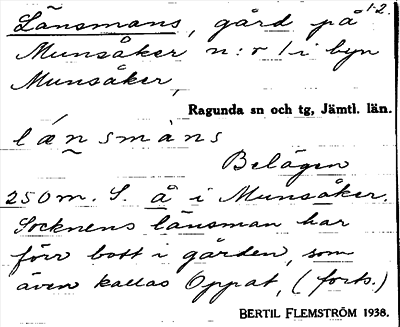 1-2.
Länsmans, gård på
Munsåker n:r 1 i byn
Munsåker,
Ragunda sn och tg, Jämtl. län.
lánsmàns
Belägen
250 m. S. å i Munsåker.
Socknens länsman har
förr bott i gården, som
även kallas Oppat, (forts.)
BERTIL FLEMSTRÖM 1938.